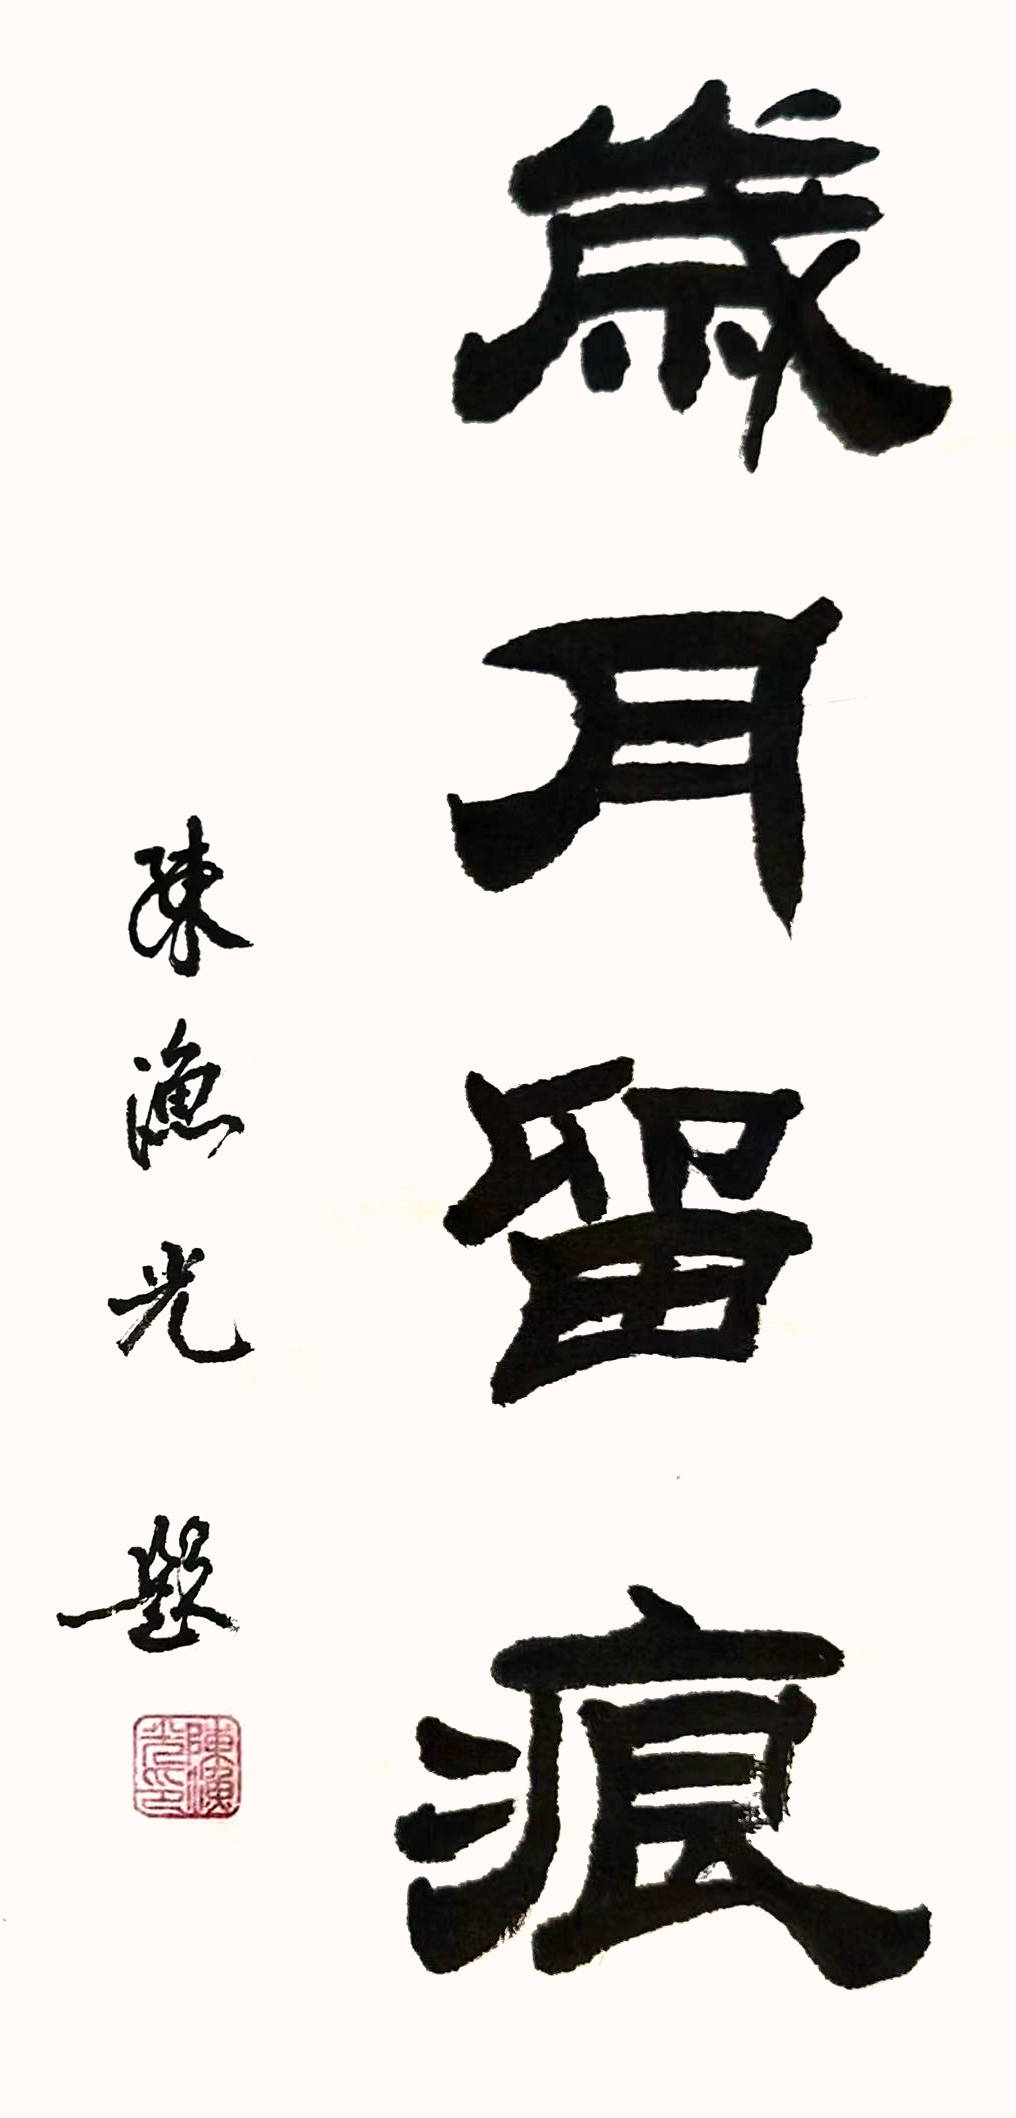 歲月留痕
陳漁光 題
陳漁光印